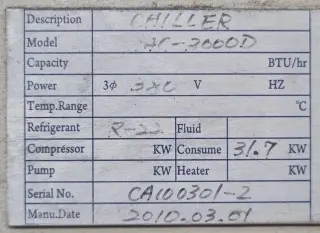 Description CHILLER
Model AC-3000D
Capacity BTU/hr
Power 3Φ V HZ
Temp.Range °C
Refrigerant R-22 Fluid
Compressor KW Consume 31.7 KW
Pump KW Heater KW
Serial No. CA100301-2
Manu.Date 2010.03.01